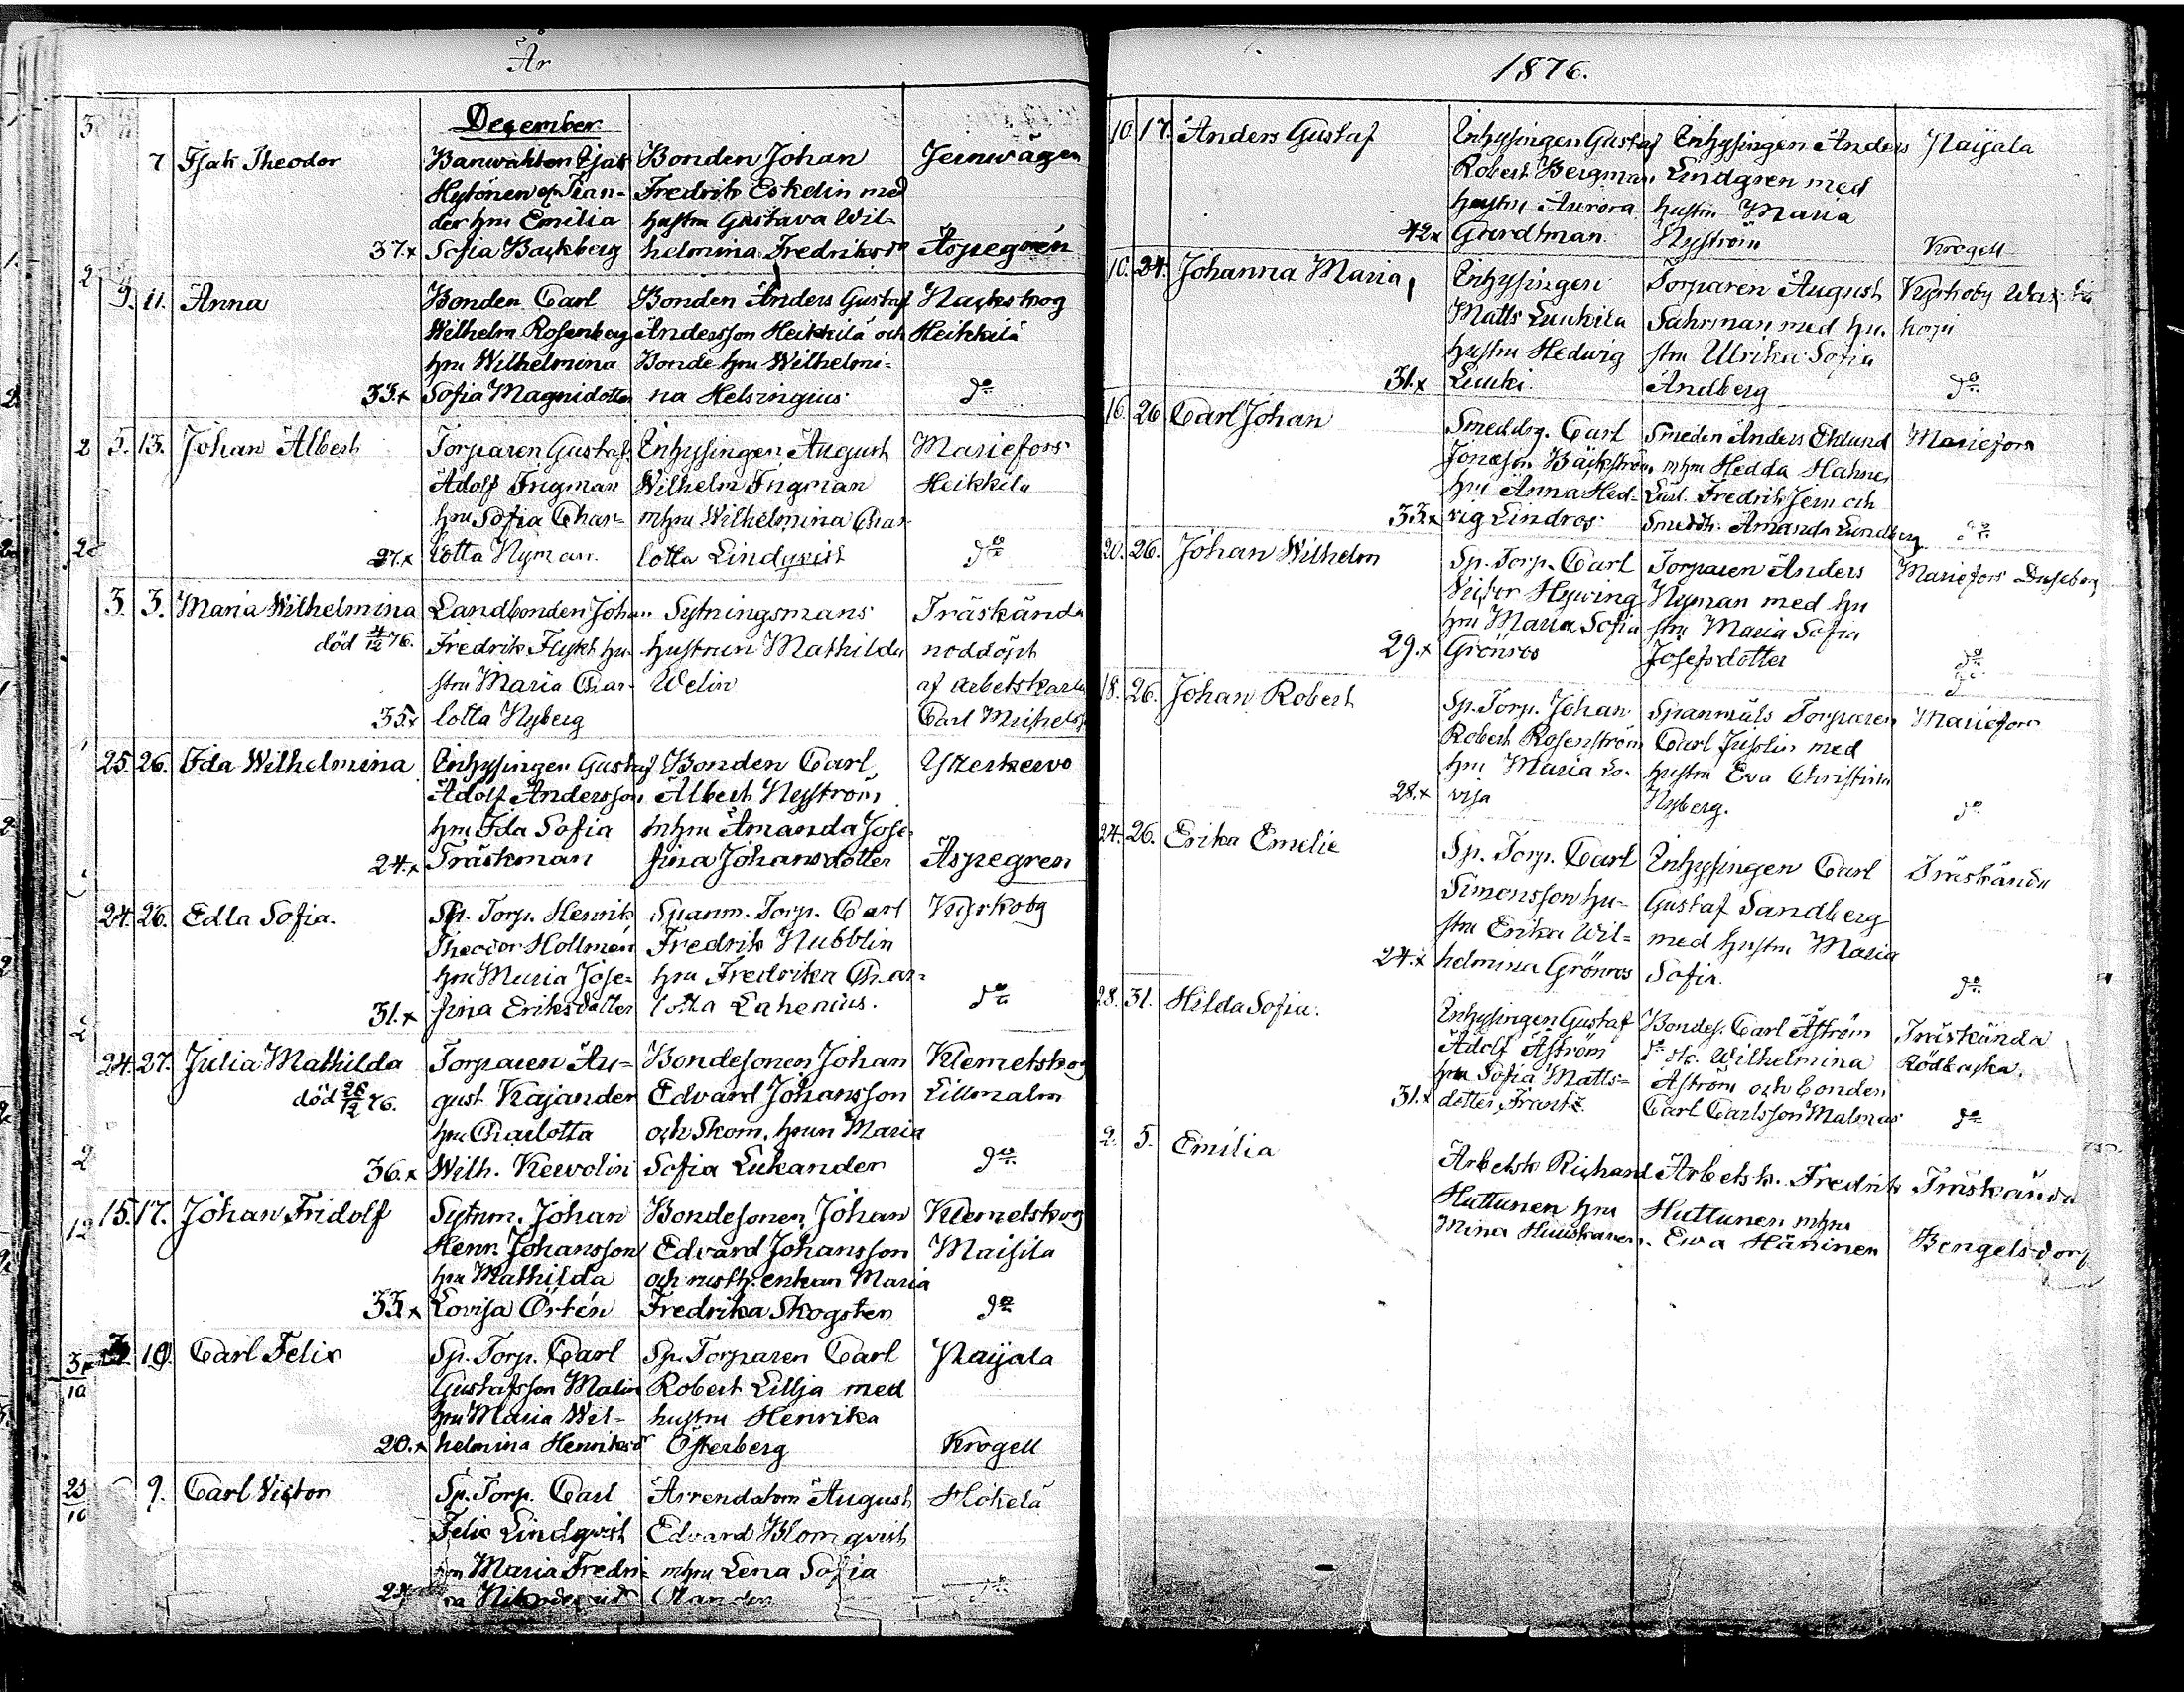 År
December
7 Isak Theodor Banvakten Isak Bonden Johan Jernvägen
Hytönen Fredrik Eskelin med
der hru Emilia hustru Gustava Wil-
37.x Sofia Backberg helmina Fredriksdr Aspegrén
9. 11. Anna Bonden Carl Bonden Anders Gustaf Nackskog
Wilhelm Rosenberg Andersson Heikkilä och Heikkilä
hru Wilhelmina Bonde hru Wilhelmi-
33.x Sofia Magnidotter na Helsingius do
5. 13. Johan Albert Torparen Gustaf Inhysingen August Mariefors
Adolf Frigman Wilhelm Frigman Heikkilä
hru Sofia Char- mhru Wilhelmina Char-
27.x lotta Nyman lotta Lindqvist do
3. 3. Maria Wilhelmina Landbonden Johan Sytningsmans Träskända
död 4/12 76. Fredrik Flykt hu- hustrun Mathilda nöddöpt
stru Maria Char- Welin af arbetskarlen
35.x lotta Nyberg Carl Michelss
25. 26. Ida Wilhelmina Inhysingen Gustaf Bonden Carl Ytterkervo
Adolf Andersson Albert Nyström
hru Ida Sofia mhru Amanda Jose-
24.x Träskman fina Johansdotter Aspegren
24. 26. Edla Sofia. Sp. Torp. Henrik Spanm. Torp. Carl Kyrkoby
Theodor Hollmén Fredrik Nubblin
hru Maria Jose- hru Fredrika Char-
31.x fina Eriksdotter lotta Lahenius. do
24. 27. Julia Mathilda Torparen Au- Bondesonen Johan Klemetskog
död 28/12 76. gust Kajander Edvard Johansson Lillmalm
hru Charlotta och Skom. hrun Maria
36.x Wilh. Kevolin Sofia Lukander do
15. 17. Johan Fridolf Sytnm. Johan Bondesonen Johan Klemetskog
Henr. Johansson Edvard Johansson Maisila
hru Mathilda och rusth. enkan Maria
33.x Lovisa Örtén Fredrika Skogster do
10. Carl Felix Sp. Torp. Carl Sp. Torparen Carl Naijala
Gustafsson Malin Robert Lillja med
hru Maria Wil- hustru Henrika
20.x helmina Henriksdr Österberg Krogell
9. Carl Victor Sp. Torp. Carl Arrendatorn August Hokelä
Felix Lindqvist Edvard Blomqvist
hru Maria Fredri- mhru Lena Sofia
1876.
10. 17. Anders Gustaf Inhysingen Gustaf Inhysingen Anders Naijala
Robert Bergman Lindgren med
hustru Aurora hustru Maria
42.x Grardtman Nyström Krogell
10. 24. Johanna Maria Inhysingen Torparen August Kyrkoby
Matts Luukila Sahrman med hu-
hustru Hedwig stru Ulrika Sofia
31.x Luuki. Andberg do
16. 26. Carl Johan Smeddrg. Carl Smeden Anders Eklund Mariefors
Jonasson Bäckström mhru Hedda
hru Anna Hed- Fredrik Jern och
33.x vig Lindros Amanda Lundberg do
20. 26. Johan Wilhelm Sp. Torp. Carl Torparen Anders Mariefors
Victor Hyving Nyman med hu
hru Maria Sofia stru Maria Sofia
29.x Grönroos Josefsdotter do
18. 26. Johan Robert Sp. Torp. Johan Spanmåls Torparen Mariefors
Robert Rosenström Carl Juslin med
hru Maria Lo- hustru Eva Christina
28.x visa Nyberg. do
24. 26. Erika Emelie Sp. Torp. Carl Inhysingen Carl Träskända
Simonsson hu- Gustaf Sandberg
stru Erika Wil- med hustru Maria
24.x helmina Grönros Sofia. do
28. 31. Hilda Sofia. Inhysingen Gustaf Bondes. Carl Åström Träskända
Adolf Åström do Wilhelmina Rödbacka.
hru Sofia Matts- Åström och bonden
31.x dotter Frants. Carl Carlsson Malmas do
2. 5. Emilia Arbetsk. Richard Arbetsk. Fredrik Träskända
Huttunen hru Huttunen mhru
Mina Huuskanen. Ewa Häninen Bengelsdorf